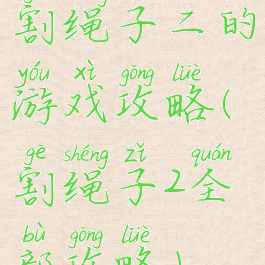 割绳子二的
yóu xì gōng lüè
游戏攻略(
gē shéng zǐ quán
割绳子2全
bù gōng lüè
部攻略)